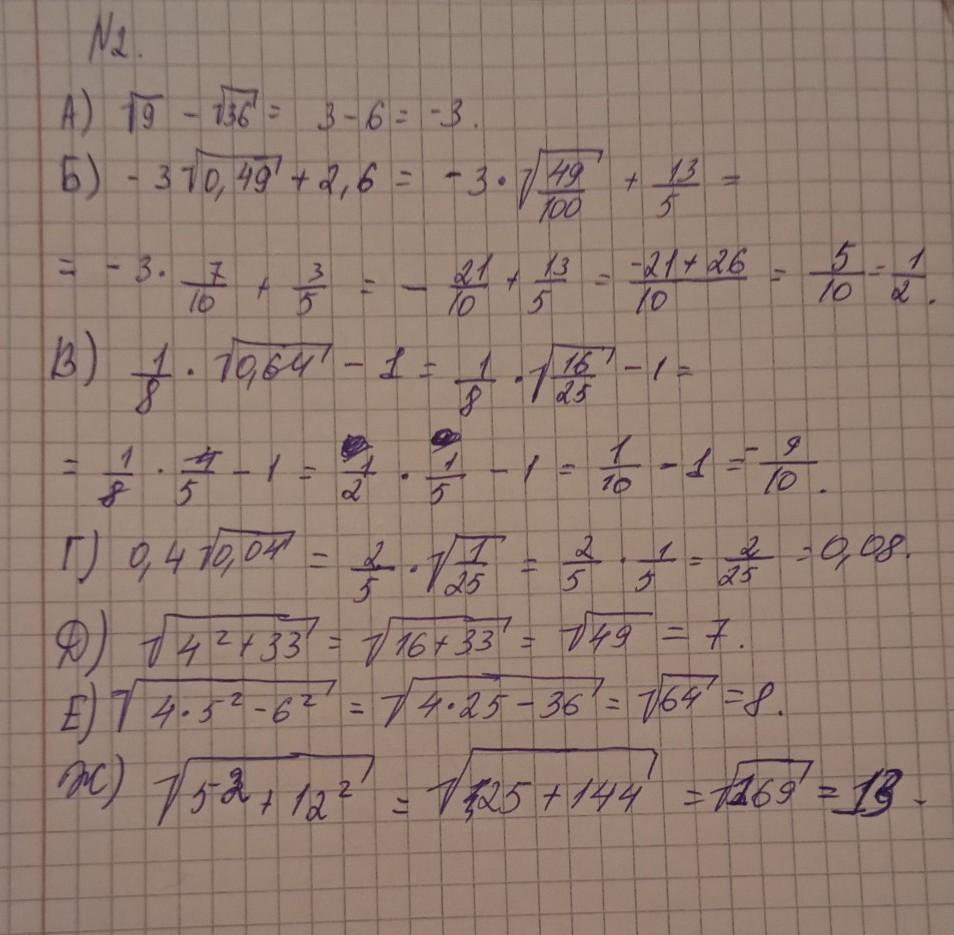 N2.
А) √9 - √36 = 3 - 6 = -3.
Б) -3√0,49 + 2,6 = -3·√49/100 + 13/5 =
= -3·7/10 + 3/5 = -21/10 + 13/5 = -21+26/10 = 5/10 = 1/2.
В) 1/8·√0,64 - 1 = 1/8·√16/25 - 1 =
= 1/8·4/5 - 1 = 1/2·1/5 - 1 = 1/10 - 1 = -9/10.
Г) 0,4√0,04 = 2/5·√1/25 = 2/5·1/5 = 2/25 = 0,08.
Д) √4²+33 = √16+33 = √49 = 7.
Е) √4·5²-6² = √4·25-36 = √64 = 8.
Ж) √5²+12² = √25+144 = √169 = 13.